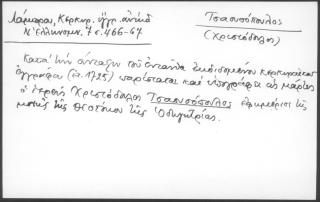 Λάμπρου, Κερκυρ. ἔγγρ. ἀνέκδ
Ν. Ἑλληνομν. 7 σ. 466-67
Τσαουσόπουλος
(Χριστόδουλος)
Κατὰ τὴν σύνταξιν τοῦ ἐνταῦθα ἐκδιδομένου κερκυραϊκοῦ
ἐγγράφου (ἔτ. 1725) παρίσταται καὶ ὑπογράφει ὡς μάρτυς
ὁ ἱερεὺς Χριστόδουλος Τσαουσόπουλος ἐφημέριος τῆς
μονῆς τῆς Θεοτόκου τῆς Ὁδηγητρίας.